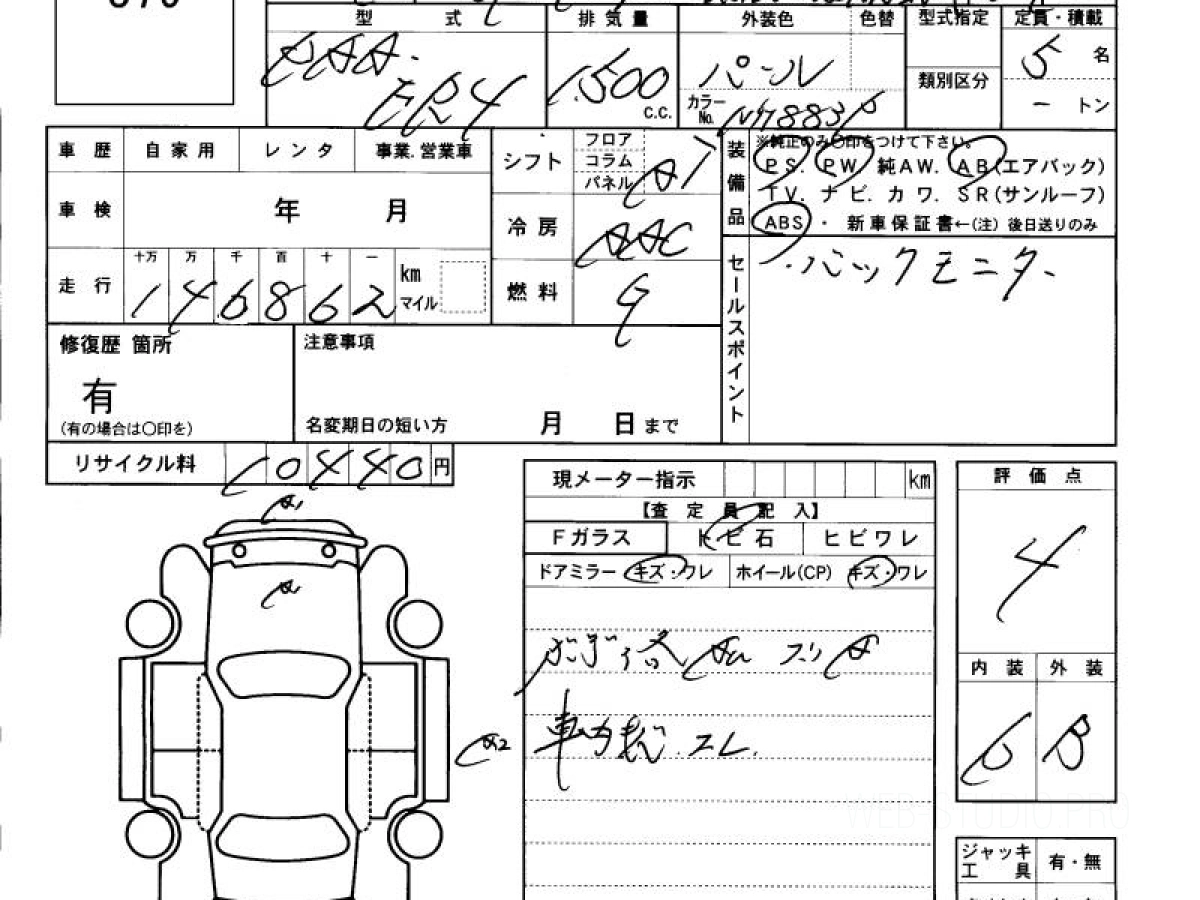 型 式 排 気 量 外装色 色替 型式指定 定員・積載
1,500 c.c.
パール
5 名
カラーNo. NH883P
類別区分
ー トン
車 歴 自 家 用 レ ン タ 事業.営業車
シフト フロア コラム パネル AT
装備品
※純正のみ〇印をつけて下さい。
PS. PW. 純AW. AB(エアバック)
TV. ナビ. カワ. SR(サンルーフ)
ABS ・ 新車保証書←(注) 後日送りのみ
車 検 年 月
冷 房 AAC
走 行 十万 万 千 百 十 一
1 4 6 8 6 2 km マイル
燃 料 G
セールスポイント
・バックモニター
修復歴 箇所
有
(有の場合は〇印を)
注意事項
名変期日の短い方 月 日 まで
リサイクル料 10440 円
現メーター指示 km
【査 定 員 記 入】
Fガラス トビ石 ヒビワレ
ドアミラー キズ・ワレ ホイール(CP) キズ・ワレ
評 価 点
4
内 装 外 装
B
A1
A
A2
コレ.
WEB-STUDIO.PRO
ジャッキ 工 具 有・無